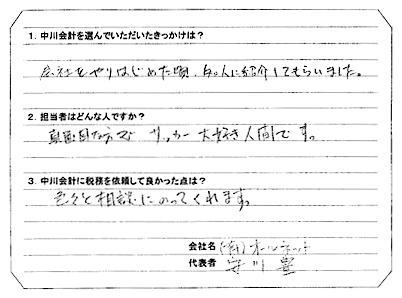 1. 中川会計を選んでいただいたきっかけは？
会社をやりはじめた頃、知人に紹介してもらいました。
2. 担当者はどんな人ですか？
真面目な方で サッカー大好き人間です。
3. 中川会計に税務を依頼して良かった点は？
色々と相談にのってくれます。
会社名 (有)オールネット
代表者 安川 豊